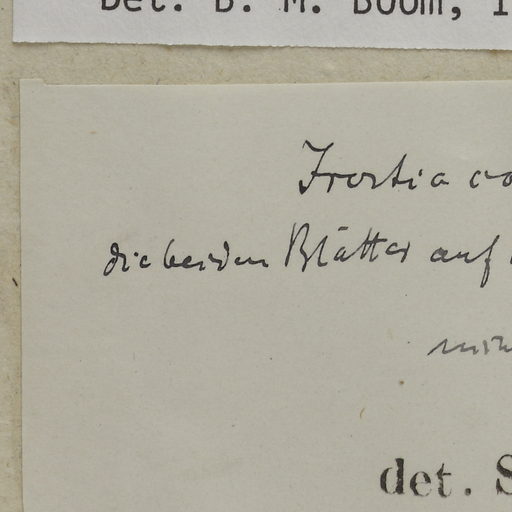 Det. B. M. Boom, 1
Frostia co
die beiden Blätter auf
det. S